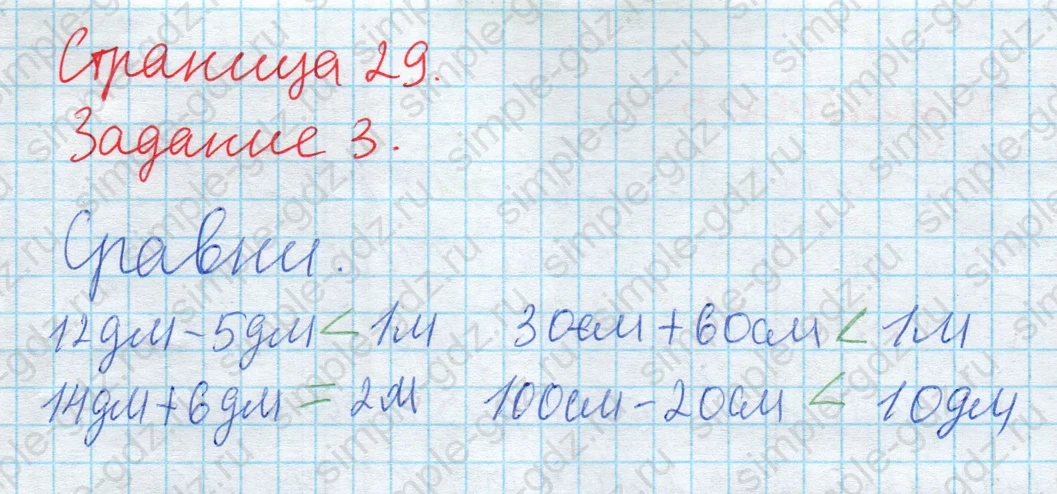 Страница 29.
Задание 3.
Сравни.
12дм-5дм<1м 30см+60см<1м
14дм+6дм=2м 100см-20см<10дм
simple-gdz.ru